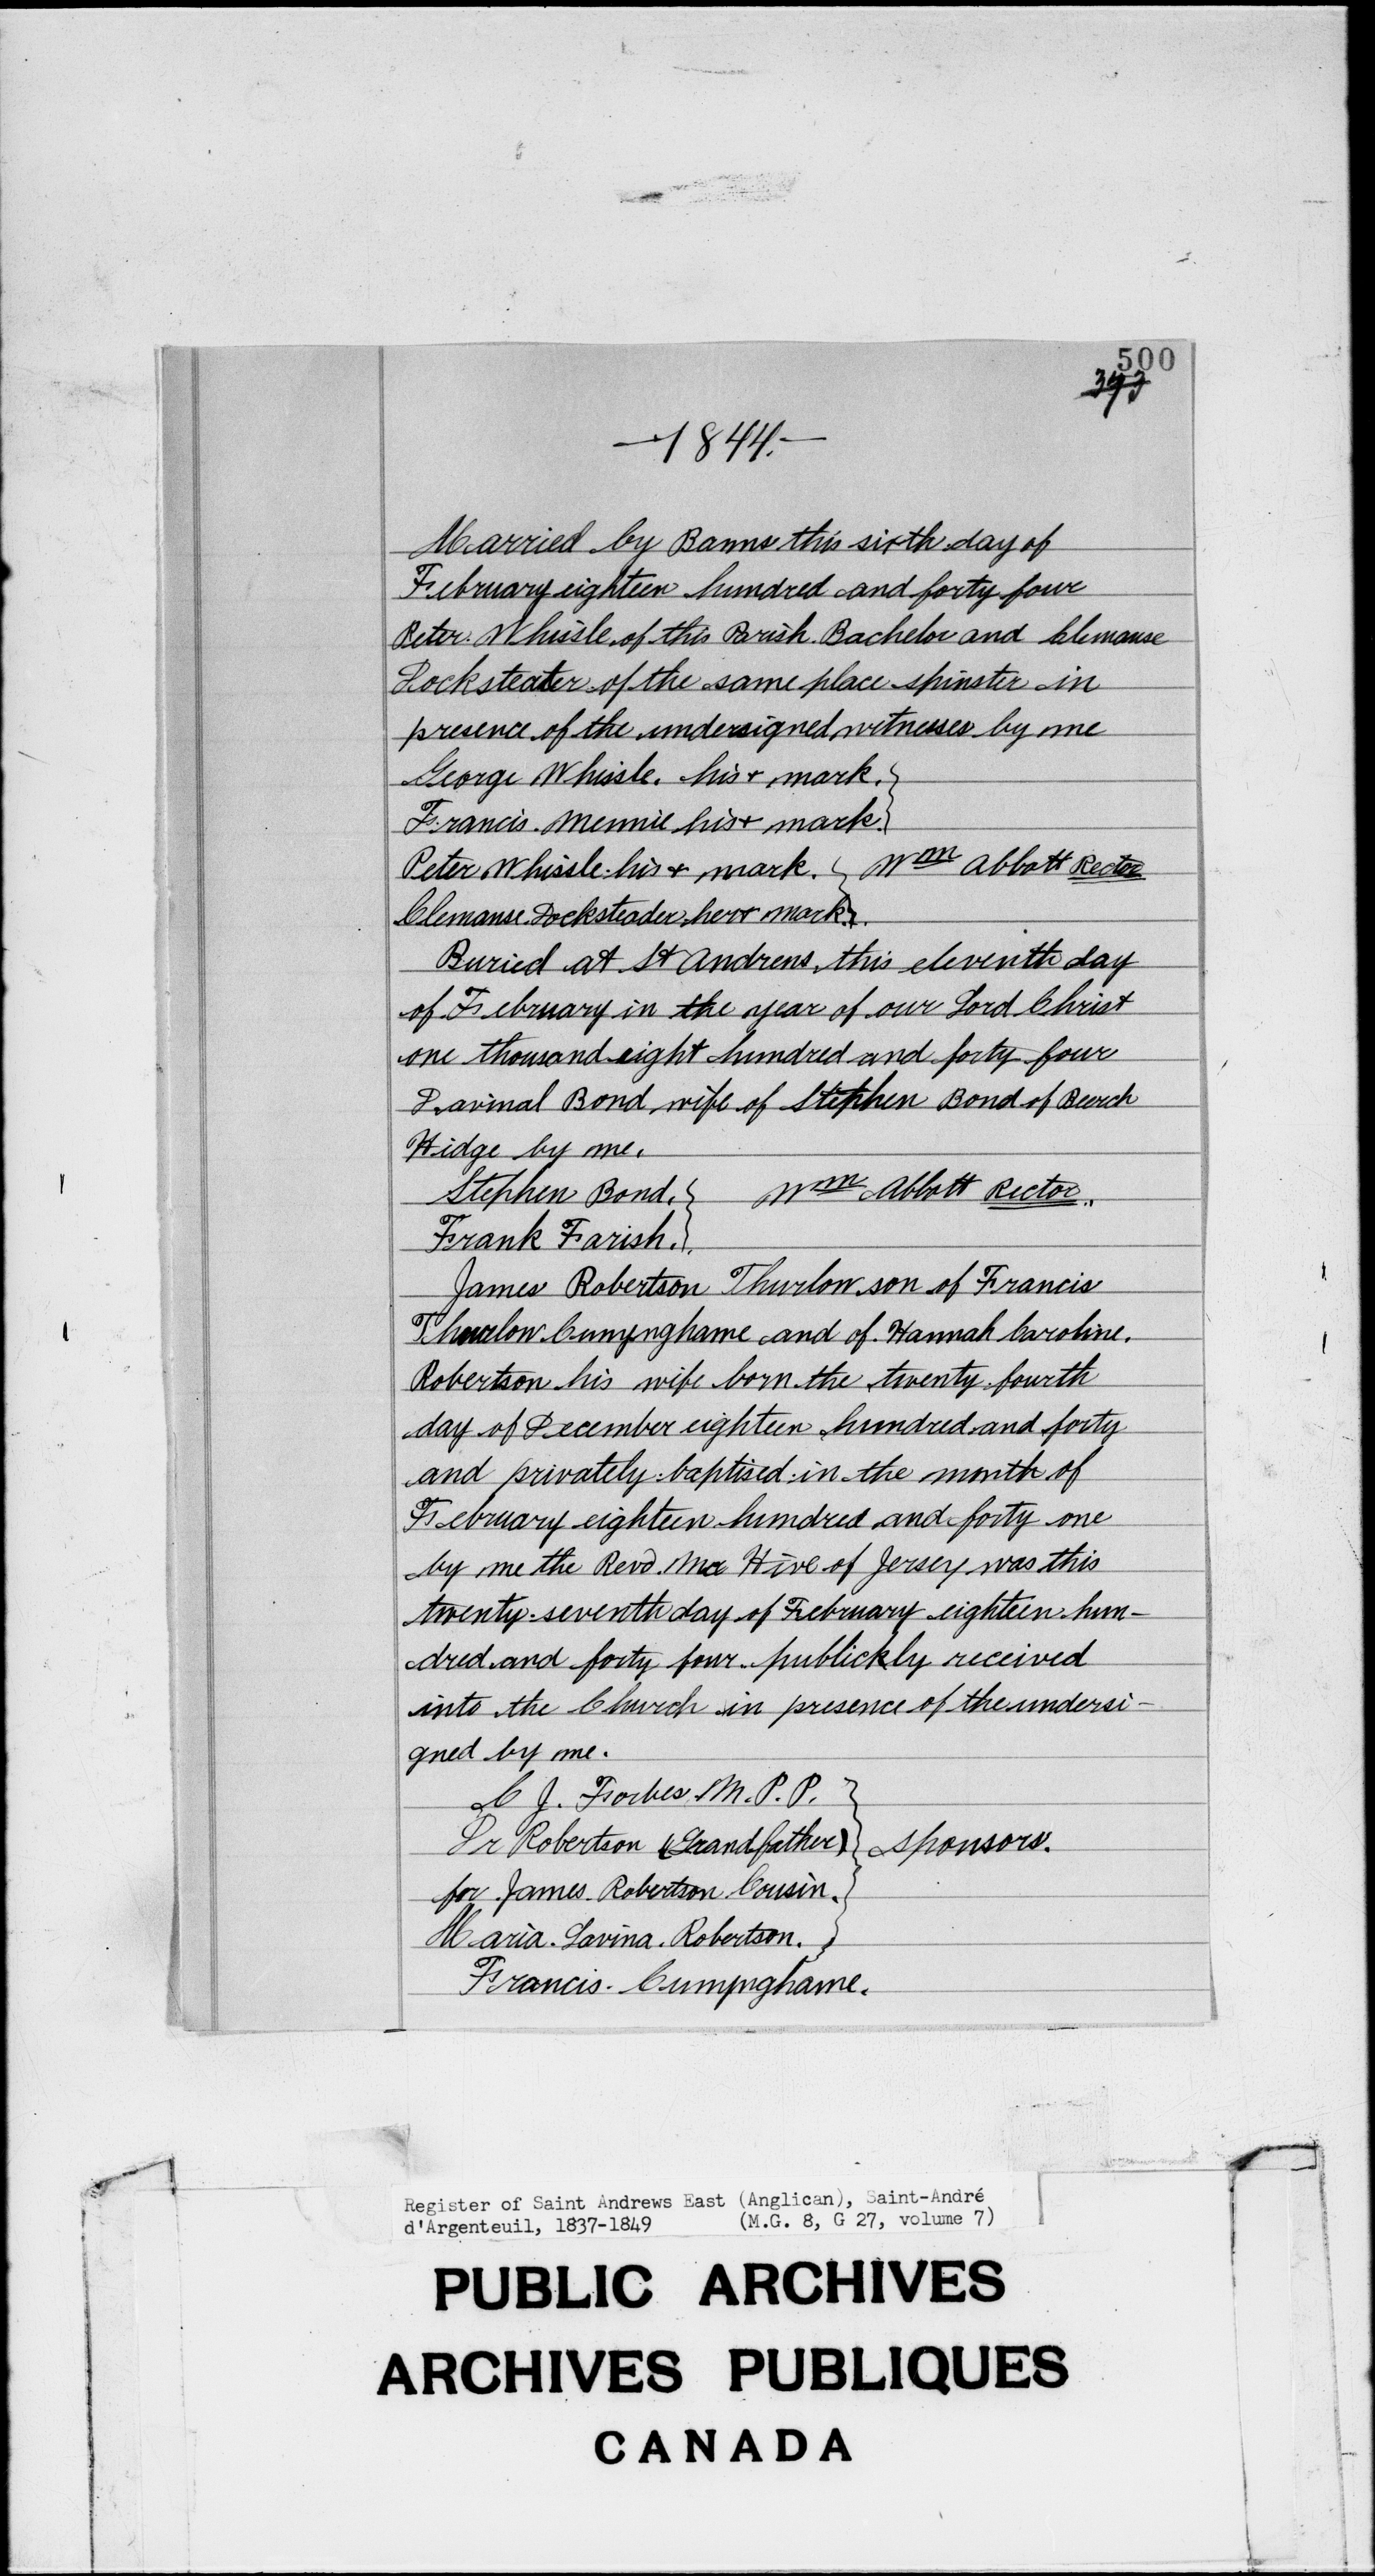 500
393
—1844.—
Married by Banns this sixth day of
February eighteen hundred and forty four
Peter Whissle of this Parish Bachelor and Clemanse
Docksteater of the same place spinster in
presence of the undersigned witnesses by me
George Whissle. his + mark.
Francis. Mennie his + mark.
Peter Whissle his + mark. Wm Abbott Rector
Clemanse Docksteader her + mark.
Buried at St Andrews this eleventh day
of February in the year of our Lord Christ
one thousand eight hundred and forty four
Lavinal Bond wife of Stephen Bond of Beech
Hidge by me.
Stephen Bond. Wm Abbott Rector.
Frank Farish.
James Robertson Thurlow son of Francis
Thurlow Cumynghame and of Hannah Caroline.
Robertson his wife born the twenty fourth
day of December eighteen hundred and forty
and privately baptised in the month of
February eighteen hundred and forty one
by me the Revd. Hive of Jersey was this
twenty-seventh day of February eighteen hun-
dred and forty four publickly received
into the Church in presence of the undersi-
gned by me.
C J. Forbes M.P.P.
Dr Robertson (Grandfather) sponsors.
for James Robertson Cousin.
Maria. Lavina. Robertson.
Francis. Cumynghame.
Register of Saint Andrews East (Anglican), Saint-André
d'Argenteuil, 1837-1849 (M.G. 8, G 27, volume 7)
PUBLIC ARCHIVES
ARCHIVES PUBLIQUES
CANADA